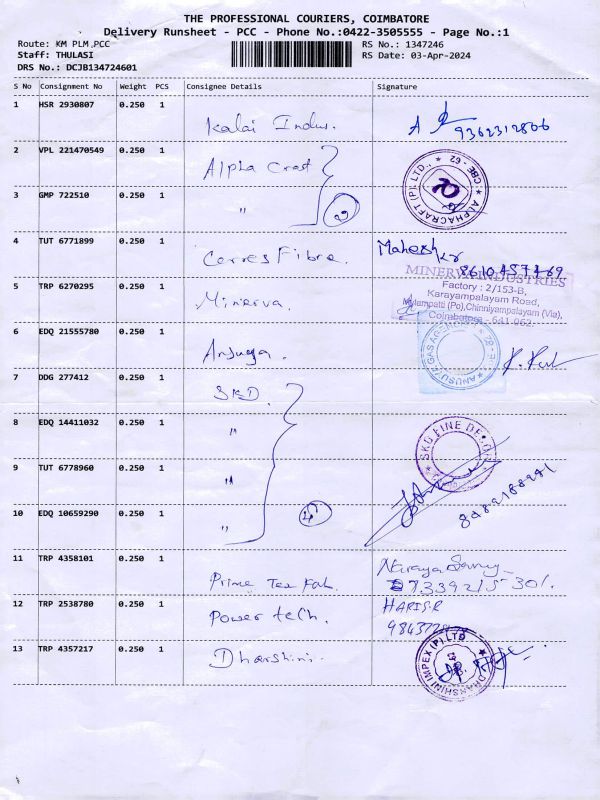 THE PROFESSIONAL COURIERS, COIMBATORE
Delivery Runsheet - PCC - Phone No.:0422-3505555 - Page No.:1
Route: KM PLM.PCC
RS No.: 1347246
Staff: THULASI
RS Date: 03-Apr-2024
DRS No.: DCJB134724601
S No Consignment No Weight PCS Consignee Details Signature
1 HSR 2930807 0.250 1
Kalai Indus. 9362312806
2 VPL 221470549 0.250 1
Alpha Craft
ALPHACRAFT (P) LTD., CBE - 62
3 GMP 722510 0.250 1
" 2
4 TUT 6771899 0.250 1
Ceeres Fibre. Mahesh
8610457469
5 TRP 6270295 0.250 1
Minerva.
MINERVA INDUSTRIES
Factory : 2/153-B,
Karayampalayam Road,
Mylampatti (Po),Chinniyampalayam (Via),
Coimbatore - 641 062.
6 EDQ 21555780 0.250 1
Anusuya.
ANUSUYA GAS AGENCY
7 DDG 277412 0.250 1
SKD
8 EDQ 14411032 0.250 1
"
SKD FINE
9 TUT 6778960 0.250 1
"
10 EDQ 10659290 0.250 1
" 4
11 TRP 4358101 0.250 1
Prime Tex Fab
Narayanasamy
12 TRP 2538780 0.250 1
Power tech.
HARIS.R
13 TRP 4357217 0.250 1
Dharshini.
DHARSHINI IMPEX (P) LTD